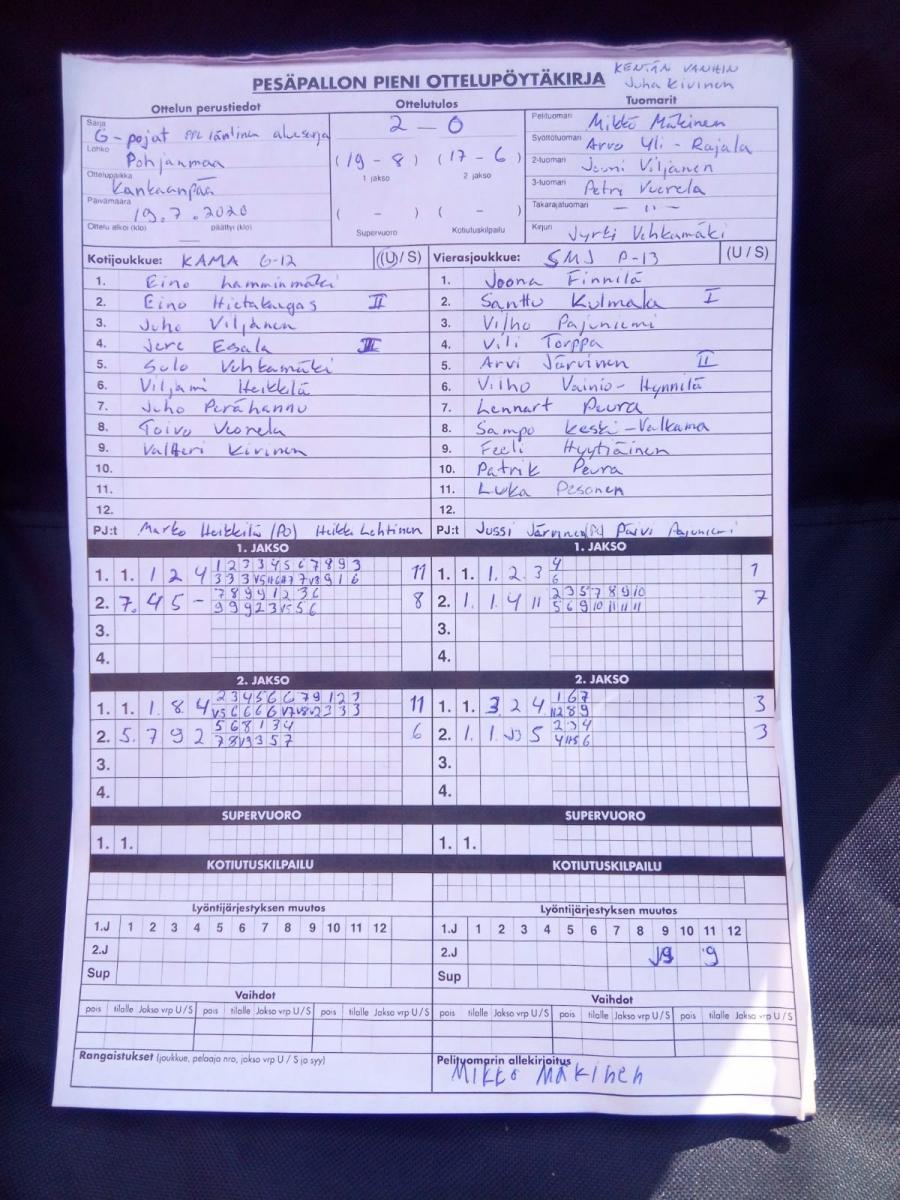 KENTÄN VANHIN
Juha Kivinen
PESÄPALLON PIENI OTTELUPÖYTÄKIRJA
Ottelun perustiedot
Ottelutulos
Tuomarit
Sarja G-pojat PPL läntinen aluesarja
Lohko Pohjanmaa
Ottelupaikka Kankaanpää
Päivämäärä 19.7.2020
Ottelu alkoi (klo) päättyi (klo)
2 - 0
(19 - 8) (17 - 6)
1 jakso 2 jakso
( - ) ( - )
Supervuoro Kotiutuskilpailu
Pelituomari Mikko Mäkinen
Syöttötuomari Arvo Yli-Rajala
2-tuomari Jouni Viljanen
3-tuomari Petri Vuorela
Takarajatuomari - 11 -
Kirjuri Jyrki Vehkamäki
Kotijoukkue: KAMA G-12 (U/S)
1. Eino Lamminmäki
2. Eino Hietakangas II
3. Juho Viljanen
4. Jere Esala III
5. Salo Vehkamäki
6. Viljami Heikkilä
7. Juho Perähannu
8. Toivo Vuorela
9. Valtteri Kivinen
10.
11.
12.
PJ:t Marko Heikkilä (PJ) Heikki Lehtinen
Vierasjoukkue: SMJ P-13 (U/S)
1. Joona Finnilä
2. Santtu Kulmala I
3. Vilho Pajuniemi
4. Vili Torppa
5. Arvi Järvinen II
6. Vilho Vainio-Hynnilä
7. Lennart Peura
8. Sampo Keski-Valkama
9. Eeli Hyytiäinen
10. Patrik Peura
11. Luka Pesonen
12.
PJ:t Jussi Järvinen (PJ) Päivi Pajuniemi
1. JAKSO
1. 1. 1 2 4 1 2 3 3 4 5 6 7 8 9 3 11
2. 7. 4 5 - 7 8 9 9 1 2 3 6 8
3.
4.
1. JAKSO
1. 1. 1. 2. 3 4 1
6
2. 1. 1. 4 11 2 3 5 7 8 9 10 7
5 6 9 10 11 11 11
3.
4.
2. JAKSO
1. 1. 1. 8. 4 2 3 4 5 6 6 7 9 1 2 3 11
2. 5. 7 9 2 5 6 8 1 3 4 6
3.
4.
2. JAKSO
1. 1. 3. 2 4 1 6 7 3
11 2 8 9
2. 1. 1. 5 2 3 4 3
3.
4.
SUPERVUORO
1. 1.
SUPERVUORO
1. 1.
KOTIUTUSKILPAILU
KOTIUTUSKILPAILU
Lyöntijärjestyksen muutos
1.J 1 2 3 4 5 6 7 8 9 10 11 12
2.J
Sup
Lyöntijärjestyksen muutos
1.J 1 2 3 4 5 6 7 8 9 10 11 12
2.J 9
Sup
Vaihdot
pois tilalle Jakso vrp U/S pois tilalle Jakso vrp U/S pois tilalle Jakso vrp U/S
Vaihdot
pois tilalle Jakso vrp U/S pois tilalle Jakso vrp U/S pois tilalle Jakso vrp U/S
Rangaistukset (joukkue, pelaaja nro, jakso vrp U/S ja syy)
Pelituomarin allekirjoitus
Mikko Mäkinen